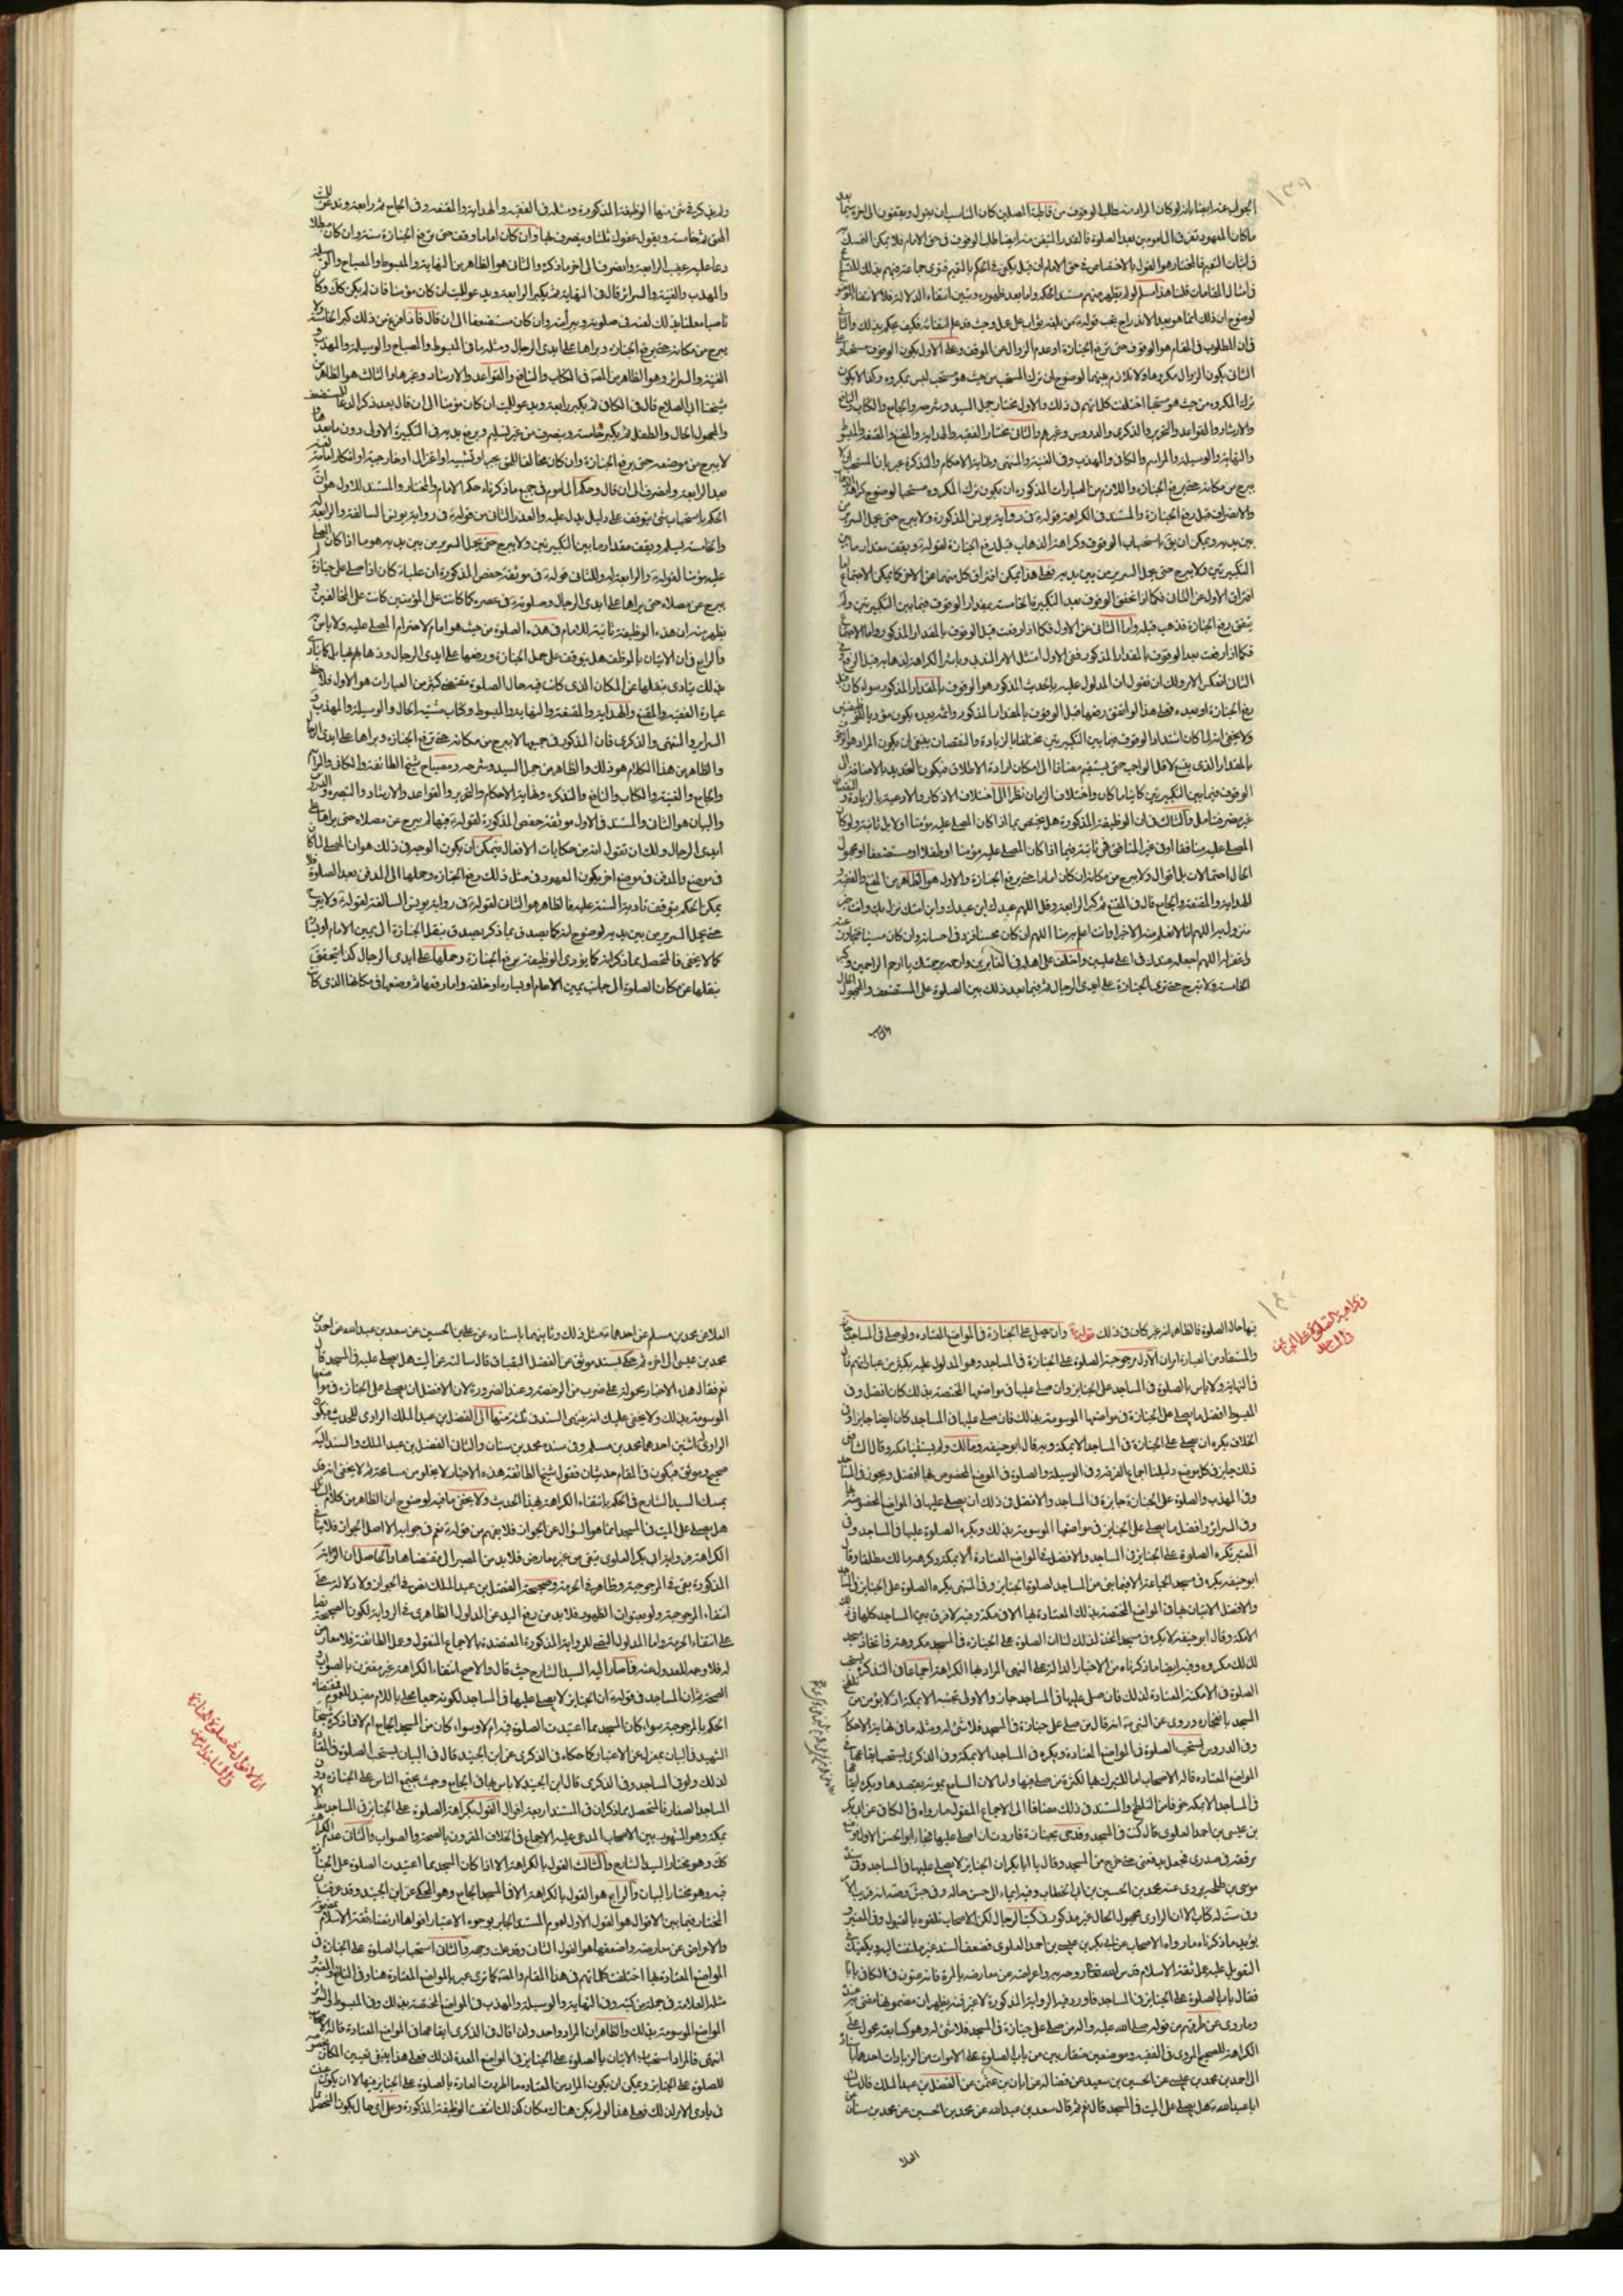 ۱۳۹
الجواب عنه ايضا بانه لو كان المراد منه طلب الوقوف من قاطبة المصلين كان المناسب ان يقول ويقفون الى اخره سيما بعد
ما كان المعهود تفرق المامومين بعد الصلوة فالقدر المتيقن منه ايضا طلب الوقوف في حق الامام فلا يمكن التمسك به
في اثبات التعميم فالمختار هو القول بالاختصاص في حق الامام
في امثال المقامات قلنا هذا مسلم لو لم يظهر منهم مستند الحكم واما بعد ظهوره وتبين انتفاء الدلالة فلا
فان المطلوب في المقام هو الوقوف حتى ترفع الجنازة او عدم الزوال عن الموقف وعلى الاول يكون الوقوف مستحبا وعلى
الثاني يكون الزوال مكروها ولا تلازم بينهما لوضوح ان ترك المستحب من حيث هو مستحب ليس بمكروه وكذا لا يكون
ترك المكروه من حيث هو مستحبا اختلفت كلماتهم في ذلك والاول مختار جمل السيد وشرحه والجامع والكتاب والنافع
والارشاد والقواعد والتحرير والذكرى والدروس وغيرهم والثاني مختار الفقيه والهداية والمقنع والمقنعة والمبسوط
والنهاية والوسيلة والمراسم والكافي والمهذب وفي الغنية والمنتهى ونهاية الاحكام والتذكرة عبر بان المستحب ان لا
يبرح من مكانه حتى يرفع الجنازة واللازم من العبارات المذكورة ان يكون ترك المكروه مستحبا لوضوح كراهة
والانصراف قبل رفع الجنازة والمستند في الكراهة قوله في رواية يونس المذكورة ولا يبرح حتى يحمل السرير من
بين يديه ويمكن ان يق باستحباب الوقوف وكراهة الذهاب قبل رفع الجنازة لقوله ويقف مقدار ما بين
التكبيرتين ولا يبرح حتى يحمل السرير من بين يديه فعلى هذا يمكن افتراق كل منهما عن الاخر كما يمكن الاجتماع اما
افتراق الاول عن الثاني فكما اذا تحقق الوقوف بعد التكبيرة الخامسة بمقدار الوقوف فيما بين التكبيرتين ولم
يتفق رفع الجنازة فذهب قبله واما الثاني عن الاول فكما اذا رفعت قبل الوقوف بالمقدار المذكور واما الاجتماع
فكما اذا رفعت بعد الوقوف بالمقدار المذكور
رفع الجنازة او بعده فعلى هذا لو اتفق رفعها قبل الوقوف بالمقدار المذكور
ولا يخفى انه لما كان امتداد الوقوف فيما بين التكبيرتين مختلفا بالزيادة والنقصان ينبغي ان يكون المراد هو الوقوف
الوقوف فيما بين التكبيرتين كاينا ما كان واختلاف الزمان نظرا الى اختلاف الاذكار والادعية بالزيادة والنقصان
غير مضر فتامل والثالث في ان الوظيفة المذكورة هل يختص بما اذا كان المصلى عليه مؤمنا او لا بل ثابتة ولو كان
المصلى عليه منافقا او في غير المنافق فهي ثابتة فيما اذا كان المصلى عليه مؤمنا او طفلا او مستضعفا او مجهول
الحال احتمالات بل اقوال ولا يبرح من مكانه ان كان اماما حتى يرفع الجنازة والاول هو الظاهر من المقنع والفقيه و
الهداية والمقنعة والجامع قال في المقنع ثم كبر الرابعة وقل اللهم عبدك ابن عبدك وابن امتك نزل بك وانت خير
منزول به اللهم انا لا نعلم منه الا خيرا وانت اعلم به منا اللهم ان كان محسنا فزد في احسانه وان كان مسيئا فتجاوز عنه
واغفر له اللهم اجعله عندك في اعلى عليين واخلف على اهله في الغابرين وارحمه برحمتك يا ارحم الراحمين وكبر
الخامسة ولا تبرح حتى ترى الجنازة على ايدي الرجال ثم فيما بعد ذلك بين الصلوة على المستضعف والمجهول الحال
ولم يذكر في شئ منها الوظيفة المذكورة ومثله في الفقيه والهداية والمقنعة وفي الجامع ثم رابعة وتدعو للميت
المؤمن ثم خامسة ويقول عفوك ثلثا وينصرف بها وان كان اماما وقف حتى ترفع الجنازة سنة وان كان مبطلا
دعا عليه عقيب الرابعة وانصرف الى اخر ما ذكره والثاني هو الظاهر من النهاية والمبسوط والمصباح والوسيلة
والمهذب والغنية والسرائر قال في النهاية ثم يكبر الرابعة ويدعو للميت ان كان مؤمنا فان لم يكن كك وكان
ناصبا معلنا بذلك لعنه في صلوته وتبرأ منه وان كان مستضعفا الى ان قال فاذا فرغ من ذلك كبر الخامسة ولا
يبرح من مكانه حتى يرفع الجنازة ويراها على ايدي الرجال ومثله ما في المبسوط والمصباح والوسيلة والمهذب و
الغنية والسرائر وهو الظاهر من المصنف في الكتاب والنافع والقواعد والارشاد وغيرها والثالث هو الظاهر من
شيخنا ابي الصلاح قال في الكافي ثم يكبر رابعة ويدعو للميت ان كان مؤمنا الى ان قال بعد ذكر الدعاء للمستضعف
والمجهول الحال والطفل ثم يكبر خامسة وينصرف من غير تسليم ويرفع يديه في التكبيرة الاولى دون ما بعدها و
لا يبرح من موضعه حتى يرفع الجنازة وان كان مخالفا للحق بجبر او تشبيه او اعتزال او خارجية او انكار امامة لعنه
بعد الرابعة وانصرف الى ان قال وحكم الماموم في جميع ما ذكرناه حكم الامام والمختار والمستند للاول هو ان
الحكم باستحباب شئ يتوقف على دليل يدل عليه والقدر الثابت من قوله في رواية يونس السالفة والرابعة له
والخامسة يسلم ويقف مقدار ما بين التكبيرتين ولا يبرح حتى يحمل السرير من بين يديه هو ما اذا كان المصلى
عليه مؤمنا لقوله والرابعة له وللثاني قوله في موثقة حفص المذكورة ان عليا كان اذا صلى على جنازة لم
يبرح من مصلاه حتى يراها على ايدي الرجال وصلوته في عصره كما كانت على المؤمنين كانت على المخالفين و
يظهر منه ان هذه الوظيفة ثابتة للامام في هذه الصلوة من حيث هو امام لا احترام المصلى عليه ولا باس به
والرابع في ان الاتيان بالوظيفة هل يتوقف على حمل الجنازة ورفعها على ايدي الرجال وذهابهم بها
بذلك يتأدى بنقلها عن المكان الذي كانت فيه حال الصلوة مقتضى كثير من العبارات هو الاول فلاحظ
عبارة الفقيه والمقنع والهداية والمقنعة والنهاية والمبسوط وكتاب شيه الحال والوسيلة والمهذب و
السرائر والمنتهى والذكرى فان المذكور في جميعها لا يبرح من مكانه حتى ترفع الجنازة ويراها على ايدي الرجال
والظاهر من هذا الكلام هو ذلك والظاهر من جمل السيد وشرحه ومصباح شيخ الطائفة والكافي والمراسم
والجامع والغنية والكتاب والنافع والتذكرة ونهاية الاحكام والتحرير والقواعد والارشاد والتبصرة والدروس
والبيان هو الثاني والمستند في الاول موثقة حفص المذكورة لقوله فيها لم يبرح من مصلاه حتى يراها على
ايدي الرجال ولك ان تقول انه من حكايات الافعال فيمكن ان يكون الوجه في ذلك هو ان المصلى لما كان
في موضع والمدفن في موضع اخر يكون المعهود في مثل ذلك رفع الجنازة وحملها الى المدفن بعد الصلوة فلا
يمكن الحكم بتوقف تادية السنة عليه فالظاهر هو الثاني لقوله في رواية يونس السالفة لقوله ولا يبرح
حتى يحمل السرير من بين يديه لوضوح انه كما يصدق بما ذكر يصدق بنقل الجنازة الى يمين الامام او يساره
كما لا يخفى فالمتحصل مما ذكر انه كما يؤدى الوظيفة برفع الجنازة وحملها على ايدي الرجال كذا يتحقق
بنقلها عن مكان الصلوة الى جانب يمين الامام او يساره او خلفه واما رفعها ثم وضعها في مكانها الذي كانت
۱٤۰
في كراهية الصلوة على الجنائز
في المساجد
فيها حال الصلوة فالظاهر انه غير كاف في ذلك قوله وان صلى على الجنازة في المواضع المعتادة ولو صلى في المساجد جاز
والمستفاد من العبارة امران الاول مرجوحية الصلوة على الجنازة في المساجد وهو المدلول عليه بكثير من عباراتهم قال
في النهاية ولا باس بالصلوة في المساجد على الجنايز وان صلى عليها في مواضعها المختصة بذلك كان افضل وفي
المبسوط افضل ما يصلى على الجنازة في مواضعها الموسومة بذلك فان صلى عليها في المساجد كان ايضا جايزا وفي
الخلاف يكره ان يصلى على الجنازة في المساجد الا بمكة وبه قال ابو حنيفة ومالك ولم يستثنيا مكة وقال الشافعي
ذلك جايز في كل موضع دليلنا اجماع الفرقة وفي الوسيلة والصلوة في الموضع المخصوص بها افضل ويجوز في المساجد
وفي المهذب والصلوة على الجنازة جايزة في المساجد والافضل في ذلك ان يصلى عليها في المواضع المخصوصة بها
وفي السرائر وافضل ما يصلى على الجنايز في مواضعها الموسومة بذلك ويكره الصلوة عليها في المساجد وفي
المعتبر تكره الصلوة على الجنايز في المساجد والافضل في المواضع المعتادة الا بمكة وكرهه مالك مطلقا وقال
ابو حنيفة يكره في مسجد الجماعة الا فيما بني من المساجد لصلوة الجنايز وفي المنتهى يكره الصلوة على الجنايز في المساجد
والافضل الاتيان بها في المواضع المختصة بذلك المعتادة بها الا في مكة وفيه لا فرق بين المساجد كلها في ذلك
الا مكة وقال ابو حنيفة لا يكره في مسجد اتخذ لذلك لنا ان الصلوة على الجنازة في المسجد مكروهة فاتخاذ مسجد
لذلك مكروه وفيه ايضا ما ذكرناه من الاخبار الدالة على النهي المراد بها الكراهة اجماعا وفي التذكرة يستحب
الصلوة في الامكنة المعتادة لذلك فان صلى عليها في المساجد جاز والاولى تجنبه الا بمكة اذ لا يؤمن من تلطخ
المسجد بانفجاره وروى عن النبي انه قال من صلى على جنازة في المسجد فلا شئ له ومثله ما في نهاية الاحكام
وفي الدروس يستحب الصلوة في المواضع المعتادة ويكره في المساجد الا بمكة وفي الذكرى يستحب ايقاعها في
المواضع المعتادة قاله الاصحاب اما للتبرك بها لكثرة من صلى فيها واما لان السامع بموته يقصدها ويكره ايقاعها
في المساجد الا بمكة خوفا من التلطخ والمستند في ذلك مضافا الى الاجماع المنقول ما رواه في الكافي عن ابي بكر
بن عيسى بن احمد العلوي قال كنت في المسجد وقد جئ بجنازة فاردت ان اصلي عليها فجاء ابو الحسن الاول فوضع
مرفقه في صدري فجعل يدفعني حتى خرج من المسجد وقال يا ابا بكر ان الجنايز لا يصلى عليها في المساجد وفي سنده
موسى بن طلحة يروي عنه محمد بن الحسين بن ابي الخطاب وفيه ايماء الى حسن حاله
وفي ست له كتاب الا ان الراوي مجهول الحال غير مذكور في كتب الرجال لكن الاصحاب تلقوه بالقبول وفي المعتبر و
يؤيد ما ذكرناه ما رواه الاصحاب عن ابي بكر بن عيسى بن احمد العلوي فضعف السند غير ملتفت اليه ويكفيك في
التعويل عليه على ثقة الاسلام قدس الله تعالى روحه واعراضه عن معارضه بالمرة فانه عنون في الكافي بابا
فقال باب الصلوة على الجنايز في المساجد فاورد فيه الرواية المذكورة لا غير فيظهر ان مضمونها مفتى به عنده
وما روى عن طرقهم من قوله صلى الله عليه واله من صلى على جنازة في المسجد فلا شئ له وهو كسابقه محمول على
الكراهة للصحيح المروي في الفقيه وموضعين متقاربين من باب الصلوة على الاموات من الزيادات احدهما باسناده
الى احمد بن محمد بن عيسى عن الحسين بن سعيد عن فضالة عن ابان بن عثمن عن الفضل بن عبد الملك قال سالت
ابا عبد الله هل يصلى على الميت في المسجد قال نعم ثم قال سعد بن عبد الله عن محمد بن الحسين عن محمد بن سنان عن
العلا
العلا عن محمد بن مسلم عن احدهما مثل ذلك وثانيهما باسناده عن علي بن الحسين عن سعد بن عبد الله عن احمد بن
محمد بن عيسى الى اخره ثم حكى بسند موثق عن الفضل البقباق قال سالته عن الميت هل يصلى عليه في المسجد قال
نعم فقال هذه الاخبار محمولة على ضرب من الرخصة وعند الضرورة لان الافضل ان يصلى على الجنازة في مواضعها
الموسومة بذلك ولا يخفى عليك انه ينتهي السند في ثلثة منها الى الفضل بن عبد الملك الراوي للحديث فيكون
الراوي اثنين احدهما محمد بن مسلم وفي سنده محمد بن سنان والثاني الفضل بن عبد الملك والسند اليه
صحيح وموثق فيكون في المقام حديثان فقول شيخ الطائفة هذه الاخبار لا يخلو من مسامحة ثم لا يخفى انه قد
تمسك السيد الشارح في الحكم بانتفاء الكراهة بهذا الحديث ولا يخفى ما فيه لوضوح ان الظاهر من كلام السائل
هل يصلى على الميت في المسجد انما هو السؤال عن الجواز فلا يفهم من قوله نعم في جوابه الا اصل الجواز فلا ينافي
الكراهة ورواية ابي بكر العلوي تبقى من غير معارض فلا بد من المصير الى مقتضاها والحاصل ان الرواية
المذكورة نص في المرجوحية وظاهر في الحرمة وصحيحة الفضل بن عبد الملك نص في الجواز ولا دلالة له على
انتفاء المرجوحية ولو بعنوان الظهور فلا بد من رفع اليد عن المدلول الظاهري في الرواية لكون الصحيحة نصا
على انتفاء الحرمة واما المدلول النصي للرواية المذكورة المعتضدة بالاجماع المنقول وعمل الطائفة فلا معارض
له فلا وجه للعدول عنه فما صار اليه السيد الشارح حيث قال والاصح انتفاء الكراهة غير مقترن بالصواب و
الصحة ثم ان المساجد في قوله ان الجنايز لا يصلى عليها في المساجد لكونه جمعا محلى باللام مفيد للعموم فمقتضاه
الحكم بالمرجوحية سواء كان المسجد مما اعتيدت الصلوة فيه ام لا وسواء كان من المسجد الجامع ام لا فما ذكره شيخنا
الشهيد في البيان بمعزل عن الاعتبار كما حكاه في الذكرى عن ابن الجنيد قال في البيان يستحب الصلوة في المعتادة
لذلك ولو في المساجد وفي الذكرى قال ابن الجنيد لا باس بها في الجامع وحيث يجتمع الناس على الجنازة دون
المساجد الصغار فالمتحصل مما ذكر ان في المسئلة اربعة اقوال القول بكراهة الصلوة على الجنايز في المساجد مط الا
بمكة وهو المشهور بين الاصحاب المدعى عليه الاجماع في الخلاف المقرون بالصحة والصواب والثاني عدم الكراهة
كك وهو مختار السيد الشارح والثالث القول بالكراهة الا اذا كان المسجد مما اعتيدت الصلوة على الجنازة
فيه وهو مختار البيان والرابع هو القول بالكراهة الا في المسجد الجامع وهو المحكي عن ابن الجنيد وقد عرفت ان
المختار فيما بين الاقوال هو القول الاول لعموم المستند
والاعراض عن معارضه واضعفها هو القول الثاني وقد علمت وجهه والثاني استحباب الصلوة على الجنازة في
المواضع المعتادة لها اختلفت كلماتهم في هذا المقام والمصنف كما ترى عبر بالمواضع المعتادة هنا وفي النافع والمعتبر و
مثله العلامة في جملة من كتبه وفي النهاية والوسيلة والمهذب في المواضع المختصة بذلك وفي المبسوط والسرائر
المواضع الموسومة بذلك والظاهر ان المراد واحد ولذا قال في الذكرى ايقاعها في المواضع المعتادة قاله الاصحاب
انتهى فالمراد استحباب الاتيان بالصلوة على الجنايز في المواضع المعدة لذلك فعلى هذا ينبغي تعيين المكان المخصوص
للصلوة على الجنايز ويمكن ان يكون المراد من المعتادة ما اطردت العادة بالصلوة على الجنايز فيها لا ان يكون
في بادي الامر لذلك فعلى هذا لو لم يكن هناك مكان كذلك انتفت الوظيفة المذكورة وعلى اي حال يكون المحصل